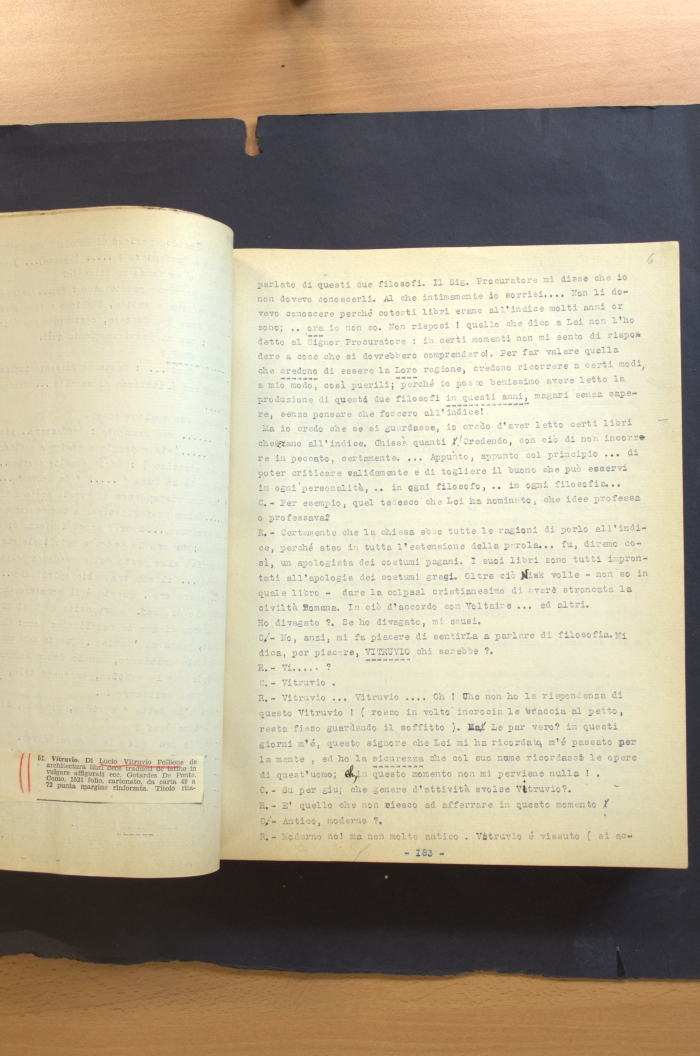 6
parlato di questi due filosofi. Il Sig. Procuratore mi disse che io
non dovevo conoscerli. Al che intimamente io sorrisi.... Non li do-
vevo conoscere perché cotesti libri erano all'indice molti anni or
sono; .. ora io non so. Non risposi ! quello che dico a Lei non l'ho
detto al Signor Procuratore : in certi momenti non mi sento di rispon
dere a cose che si dovrebbero comprendere!. Per far valere quella
che credono di essere la Loro ragione, credono ricorrere a certi modi,
a mio modo, così puerili; perché io posso benissimo avere letto la
produzione di questi due filosofi in questi anni, magari senza sape-
re, senza pensare che fossero all'indice!
Ma io credo che se si guardasse, io credo d'aver letto certi libri
che erano all'indice. Chissà quanti ! Credendo, con ciò di non incorre
re in peccato, certamente. ... Appunto, appunto col principio ... di
poter criticare validamente e di togliere il buono che può esservi
in ogni personalità, .. in ogni filosofo, .. in ogni filosofia...
C.- Per esempio, quel tedesco che Lei ha nominato, che idee professa
o professava?
R.- Certamente che la chiesa ebbe tutte le ragioni di porlo all'indi-
ce, perché ateo in tutta l'estensione della parola... fu, diremo co-
sì, un apologista dei costumi pagani. I suoi libri sono tutti impron-
tati all'apologia dei costumi greci. Oltre ciò Nisk volle - non so in
quale libro - dare la colpaal cristianesimo di averè stroncata la
civiltà Romana. In ciò d'accordo con Voltaire ... ed altri.
Ho divagato ?. Se ho divagato, mi scusi.
C.- No, anzi, mi fa piacere di sentirLa a parlare di filosofia. Mi
dica, per piacere, VITRUVIO chi sarebbe ?.
R.- Vi..... ?
C.- Vitruvio .
R.- Vitruvio ... Vitruvio .... Oh ! Che non ho la rispondenza di
questo Vitruvio ! ( rosso in volto incrocia le braccia al petto,
resta fisso guardando il soffitto ). Ma! Le par vero? in questi
giorni m'é, questo signore che Lei mi ha ricordato, m'é passato per
la mente , ed ho la sicurezza che col suo nome ricordassi le opere
di quest'uomo; eh, in questo momento non mi perviene nulla ! .
C.- Su per giu; che genere d'attività svolse Vitruvio?.
R.- E' quello che non riesco ad afferrare in questo momento !
C.- Antico, moderno ?.
R.- Moderno no! ma non molto antico . Vitruvio é vissuto ( si ac-
- 183 -
51. Vitruvio. Di Lucio Vitruvio Pollione de
architectura libri dece traducti de latino in
vulgare affigurati ecc. Gotardus De Ponte.
Como, 1521 folio, cartonato, da carta 48 a
72 punta margine rinforzata. Titolo rita-